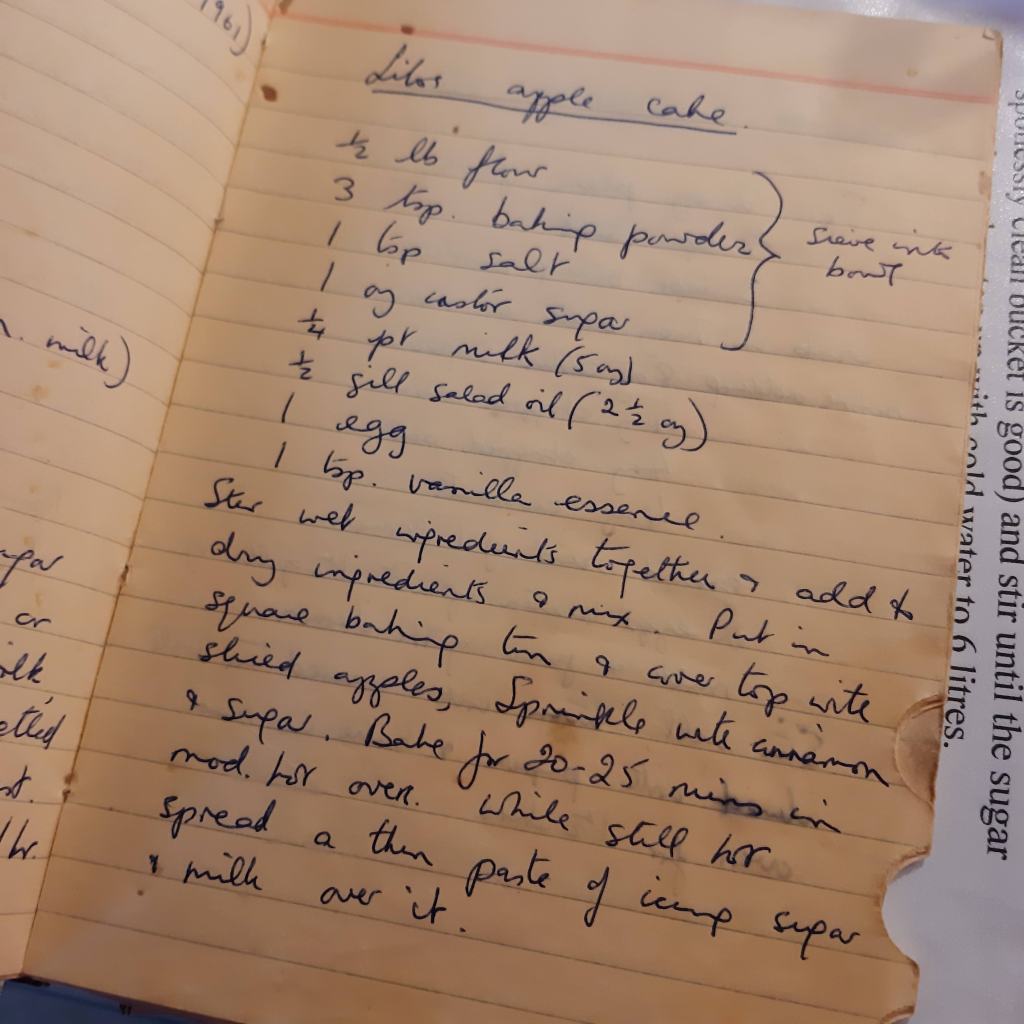 1961)
n. milk)
sugar
or
milk,
st.
1 hr.
Lilos apple cake.
½ lb flour
3 tsp. baking powder
1 tsp salt
1 oz castor sugar
sieve into
bowl
¼ pt milk (5 oz)
½ gill salad oil (2½ oz)
1 egg
1 tsp. vanilla essence.
Stir wet ingredients together & add to
dry ingredients & mix. Put in
square baking tin & cover top with
sliced apples, Sprinkle with cinnamon
& sugar. Bake for 20-25 mins in
mod. hot oven. While still hot
spread a thin paste of icing sugar
& milk over it.
spotlessly clean bucket is good) and stir until the sugar
with cold water to 6 litres.